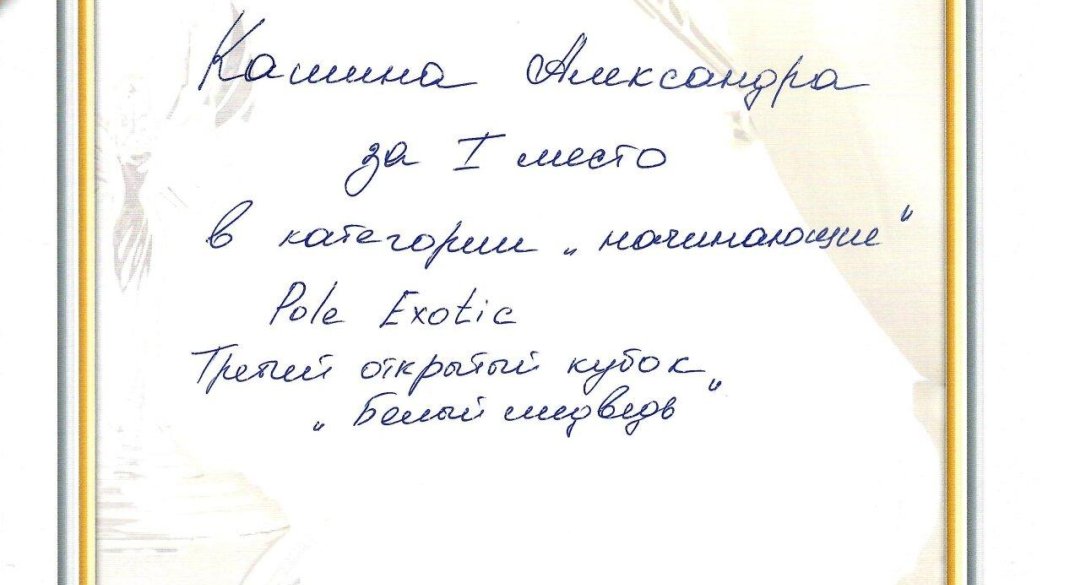 Кашина Александра
за I место
в категории „начинающие"
Pole Exotic
Третий открытый кубок
„Белый медведь"